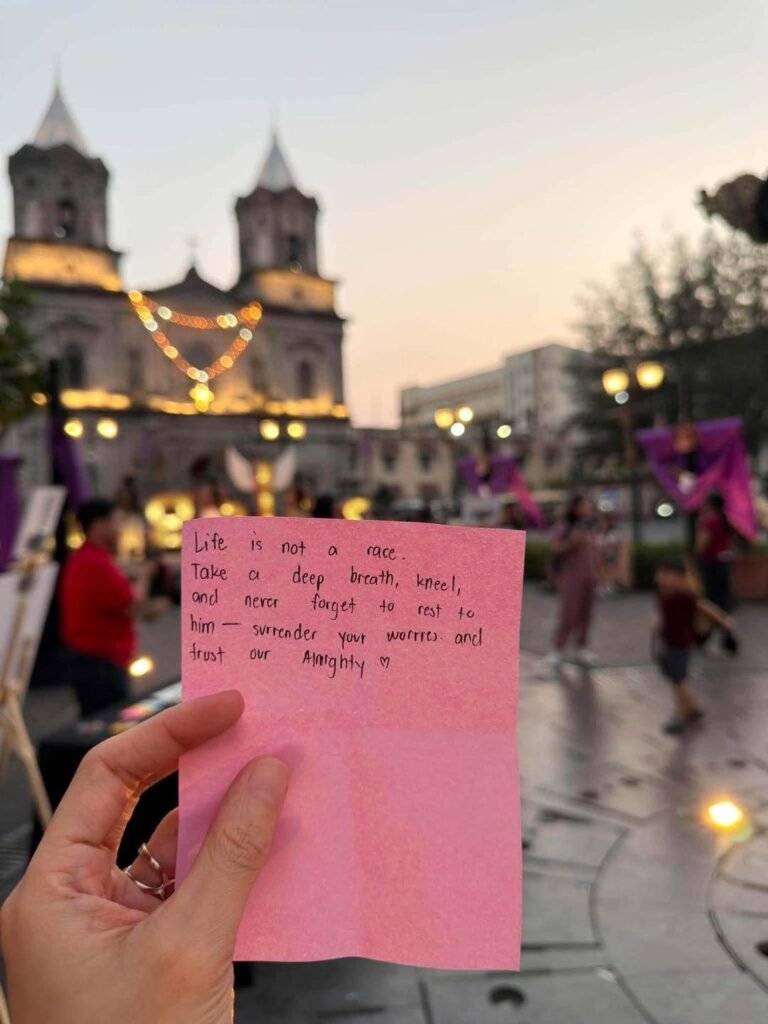 Life is not a race.
Take a deep breath, kneel,
and never forget to rest to
him — surrender your worries and
trust our Almighty ♡